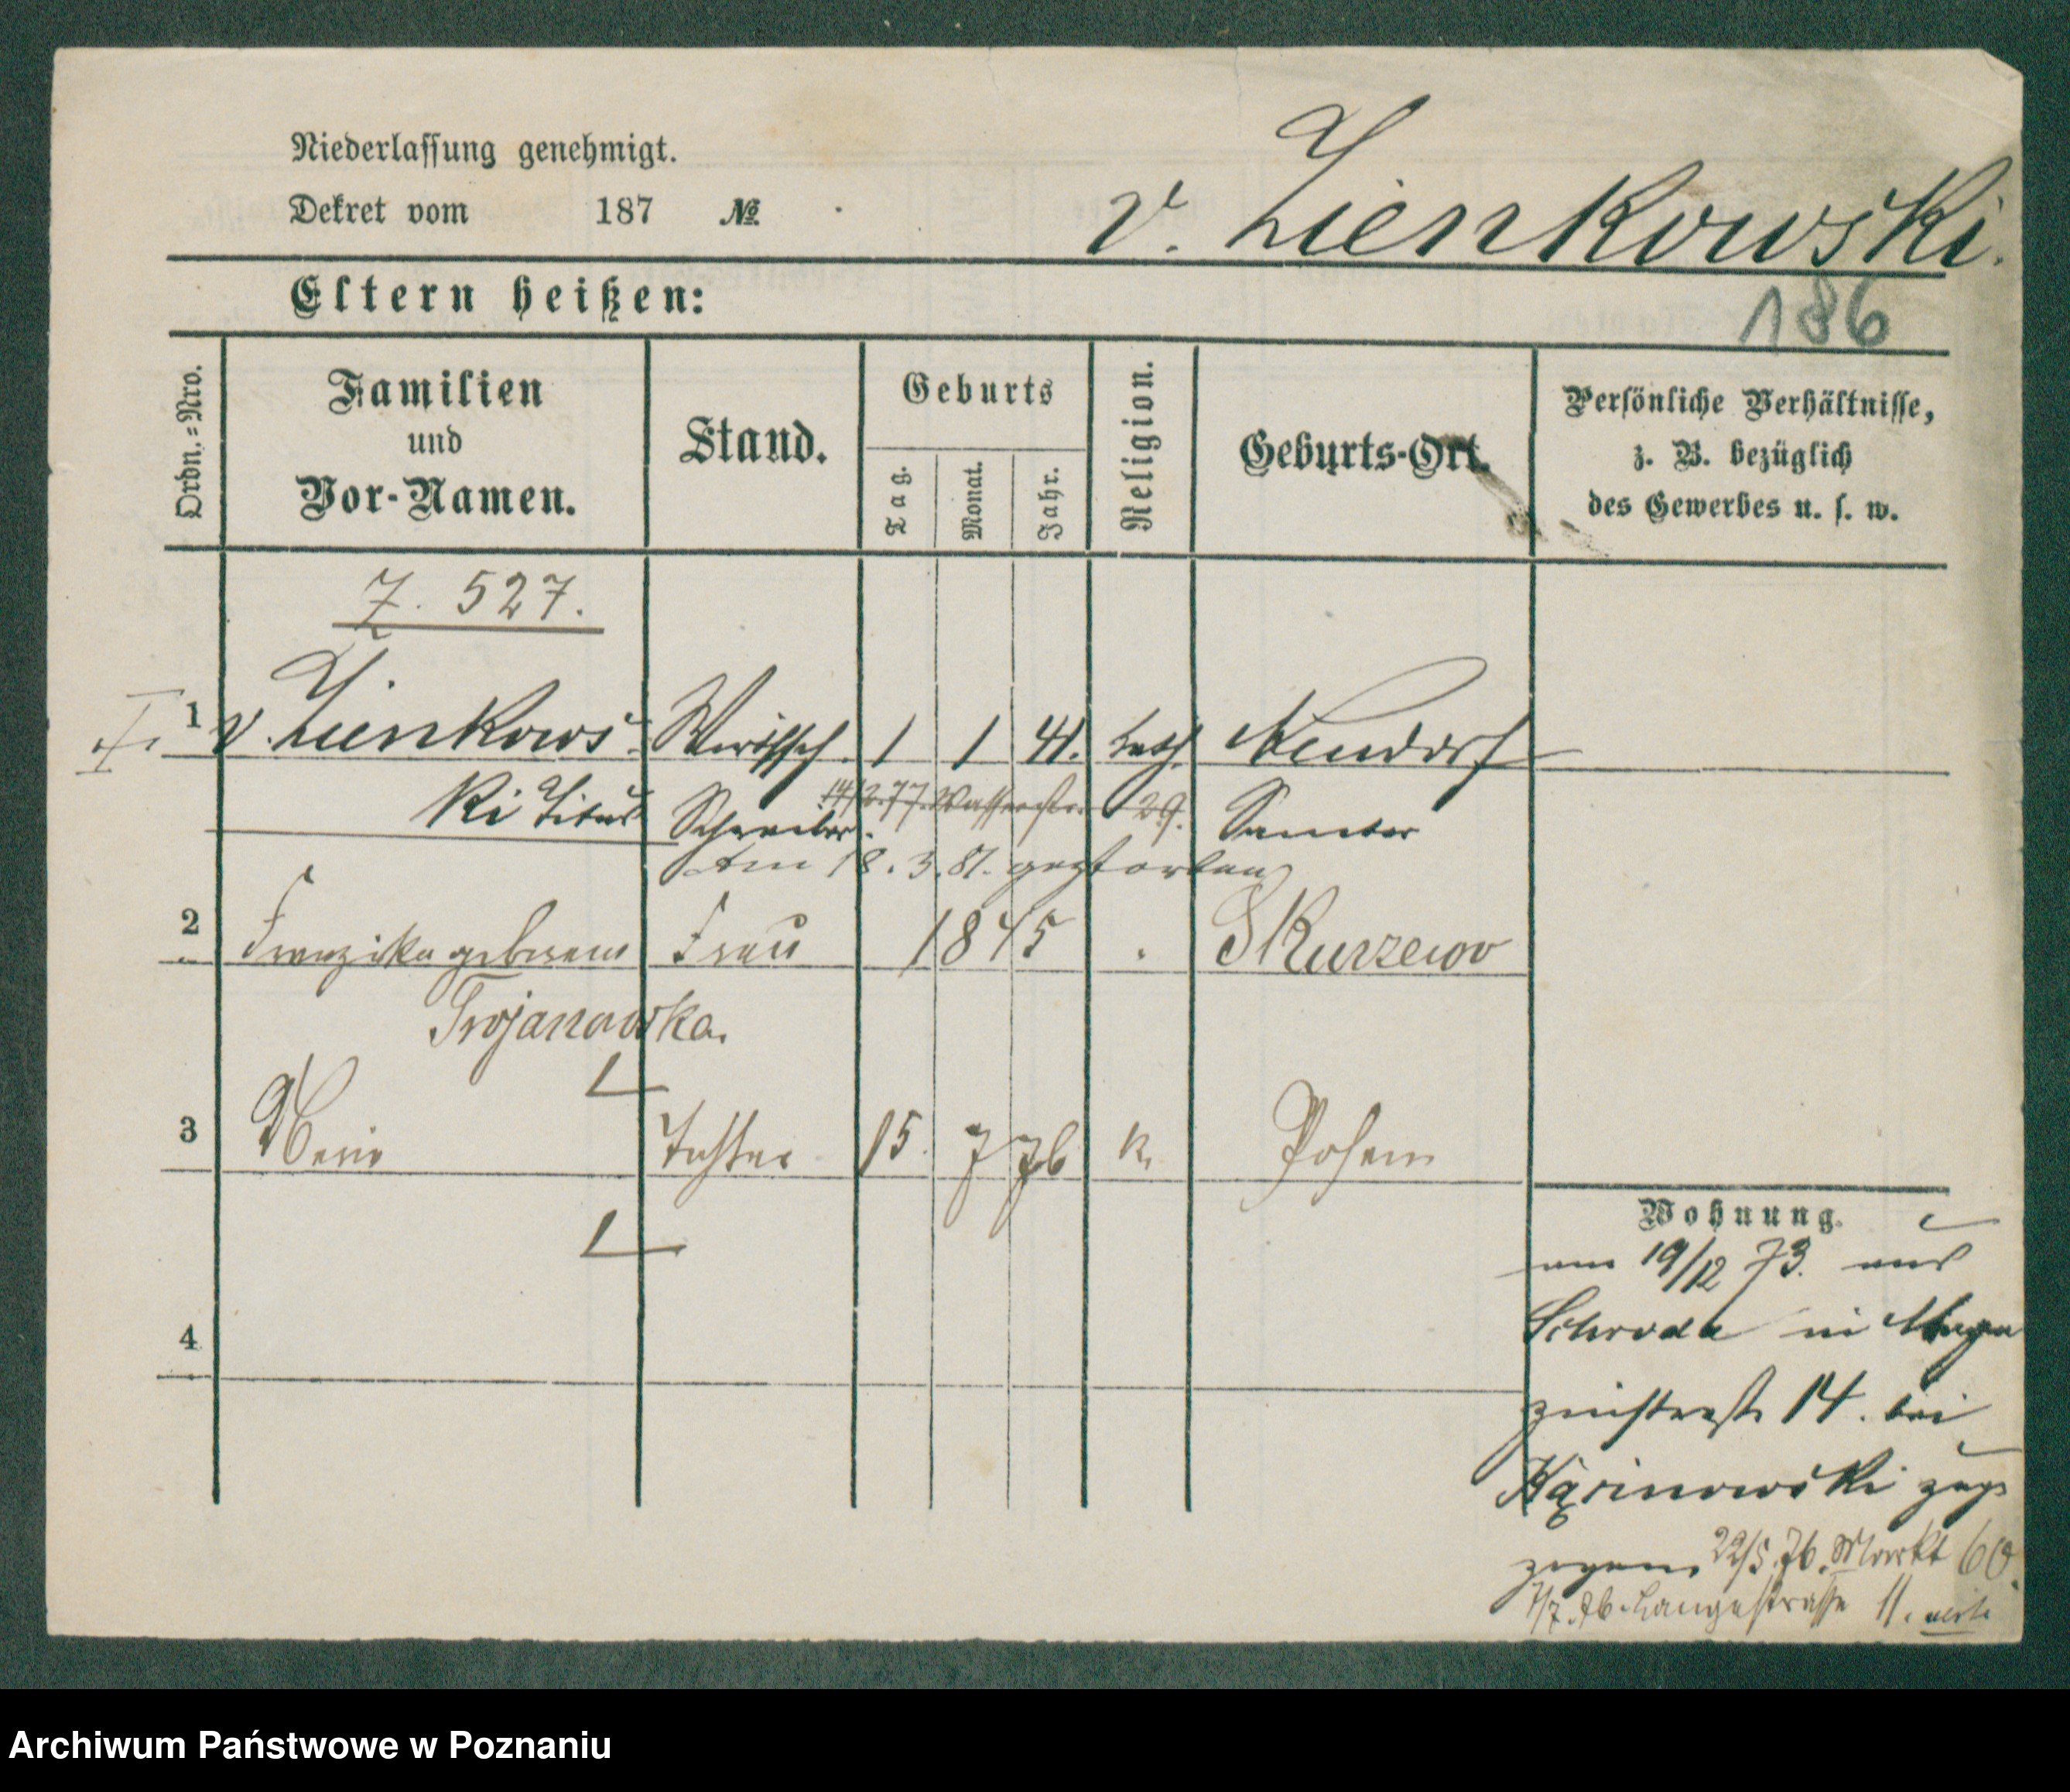 Niederlassung genehmigt.
Dekret vom 187 №
v. Zienkowski.
186
Eltern heißen:
Ordn.-Nro.
Familien und Vor-Namen.
Stand.
Geburts
Tag.
Monat.
Jahr.
Religion.
Geburts-Ort.
Persönliche Verhältnisse,
z. B. bezüglich
des Gewerbes u. s. w.
Z. 527.
1 v. Zienkows- Wirthsch. 1 1 41. kath. Neudorf
ki Titus Schreiber. 14/2. 77. Wasserstr. 29. Samter
am 18. 3. 81. gestorben
2 Franziska geborene Frau 1845 Skurzewo
Trojanowska.
3 Marie Tochter 15. 7 76 k. Posen
4
Wohnung.
am 19/12 73. aus
Schroda in Maga
zinstraße 14. bei
zuge
zogen, 22/5. 76. Markt 60.
7/7. 76. Langestrasse 11.
Archiwum Państwowe w Poznaniu